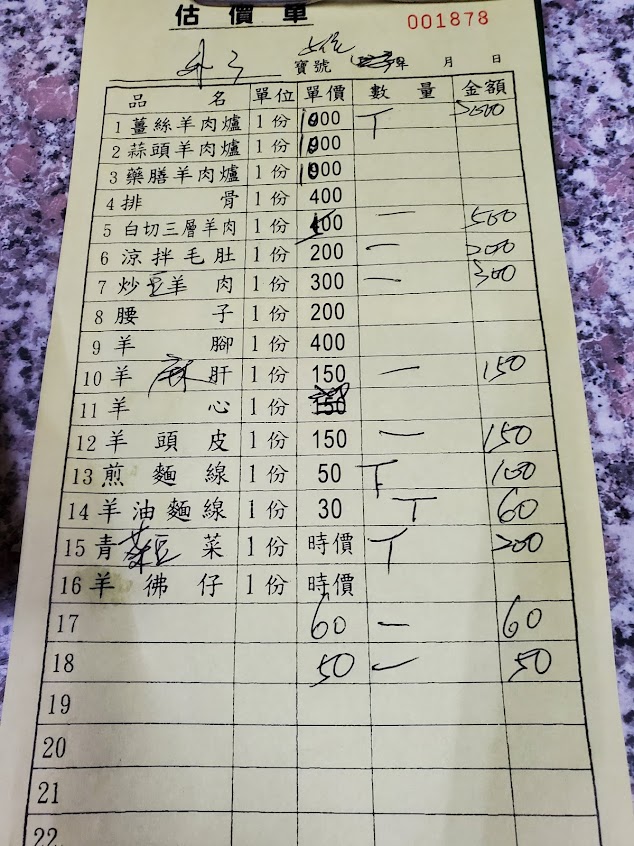 估價單
001878
寶號 年 月 日
品名 單位 單價 數量 金額
1 薑絲羊肉爐 1份 1000 T 2000
2 蒜頭羊肉爐 1份 1000
3 藥膳羊肉爐 1份 1000
4 排骨 1份 400
5 白切三層羊肉 1份 一 500
6 涼拌毛肚 1份 200 一 200
7 炒羊肉 1份 300 一 300
8 腰子 1份 200
9 羊腳 1份 400
10 羊肝 1份 150 一 150
11 羊心 1份 150
12 羊頭皮 1份 150 一 150
13 煎麵線 1份 50 T 100
14 羊油麵線 1份 30 T 60
15 青菜 1份 時價 T 200
16 羊彿仔 1份 時價
17 60 一 60
18 50 一 50
19
20
21
22